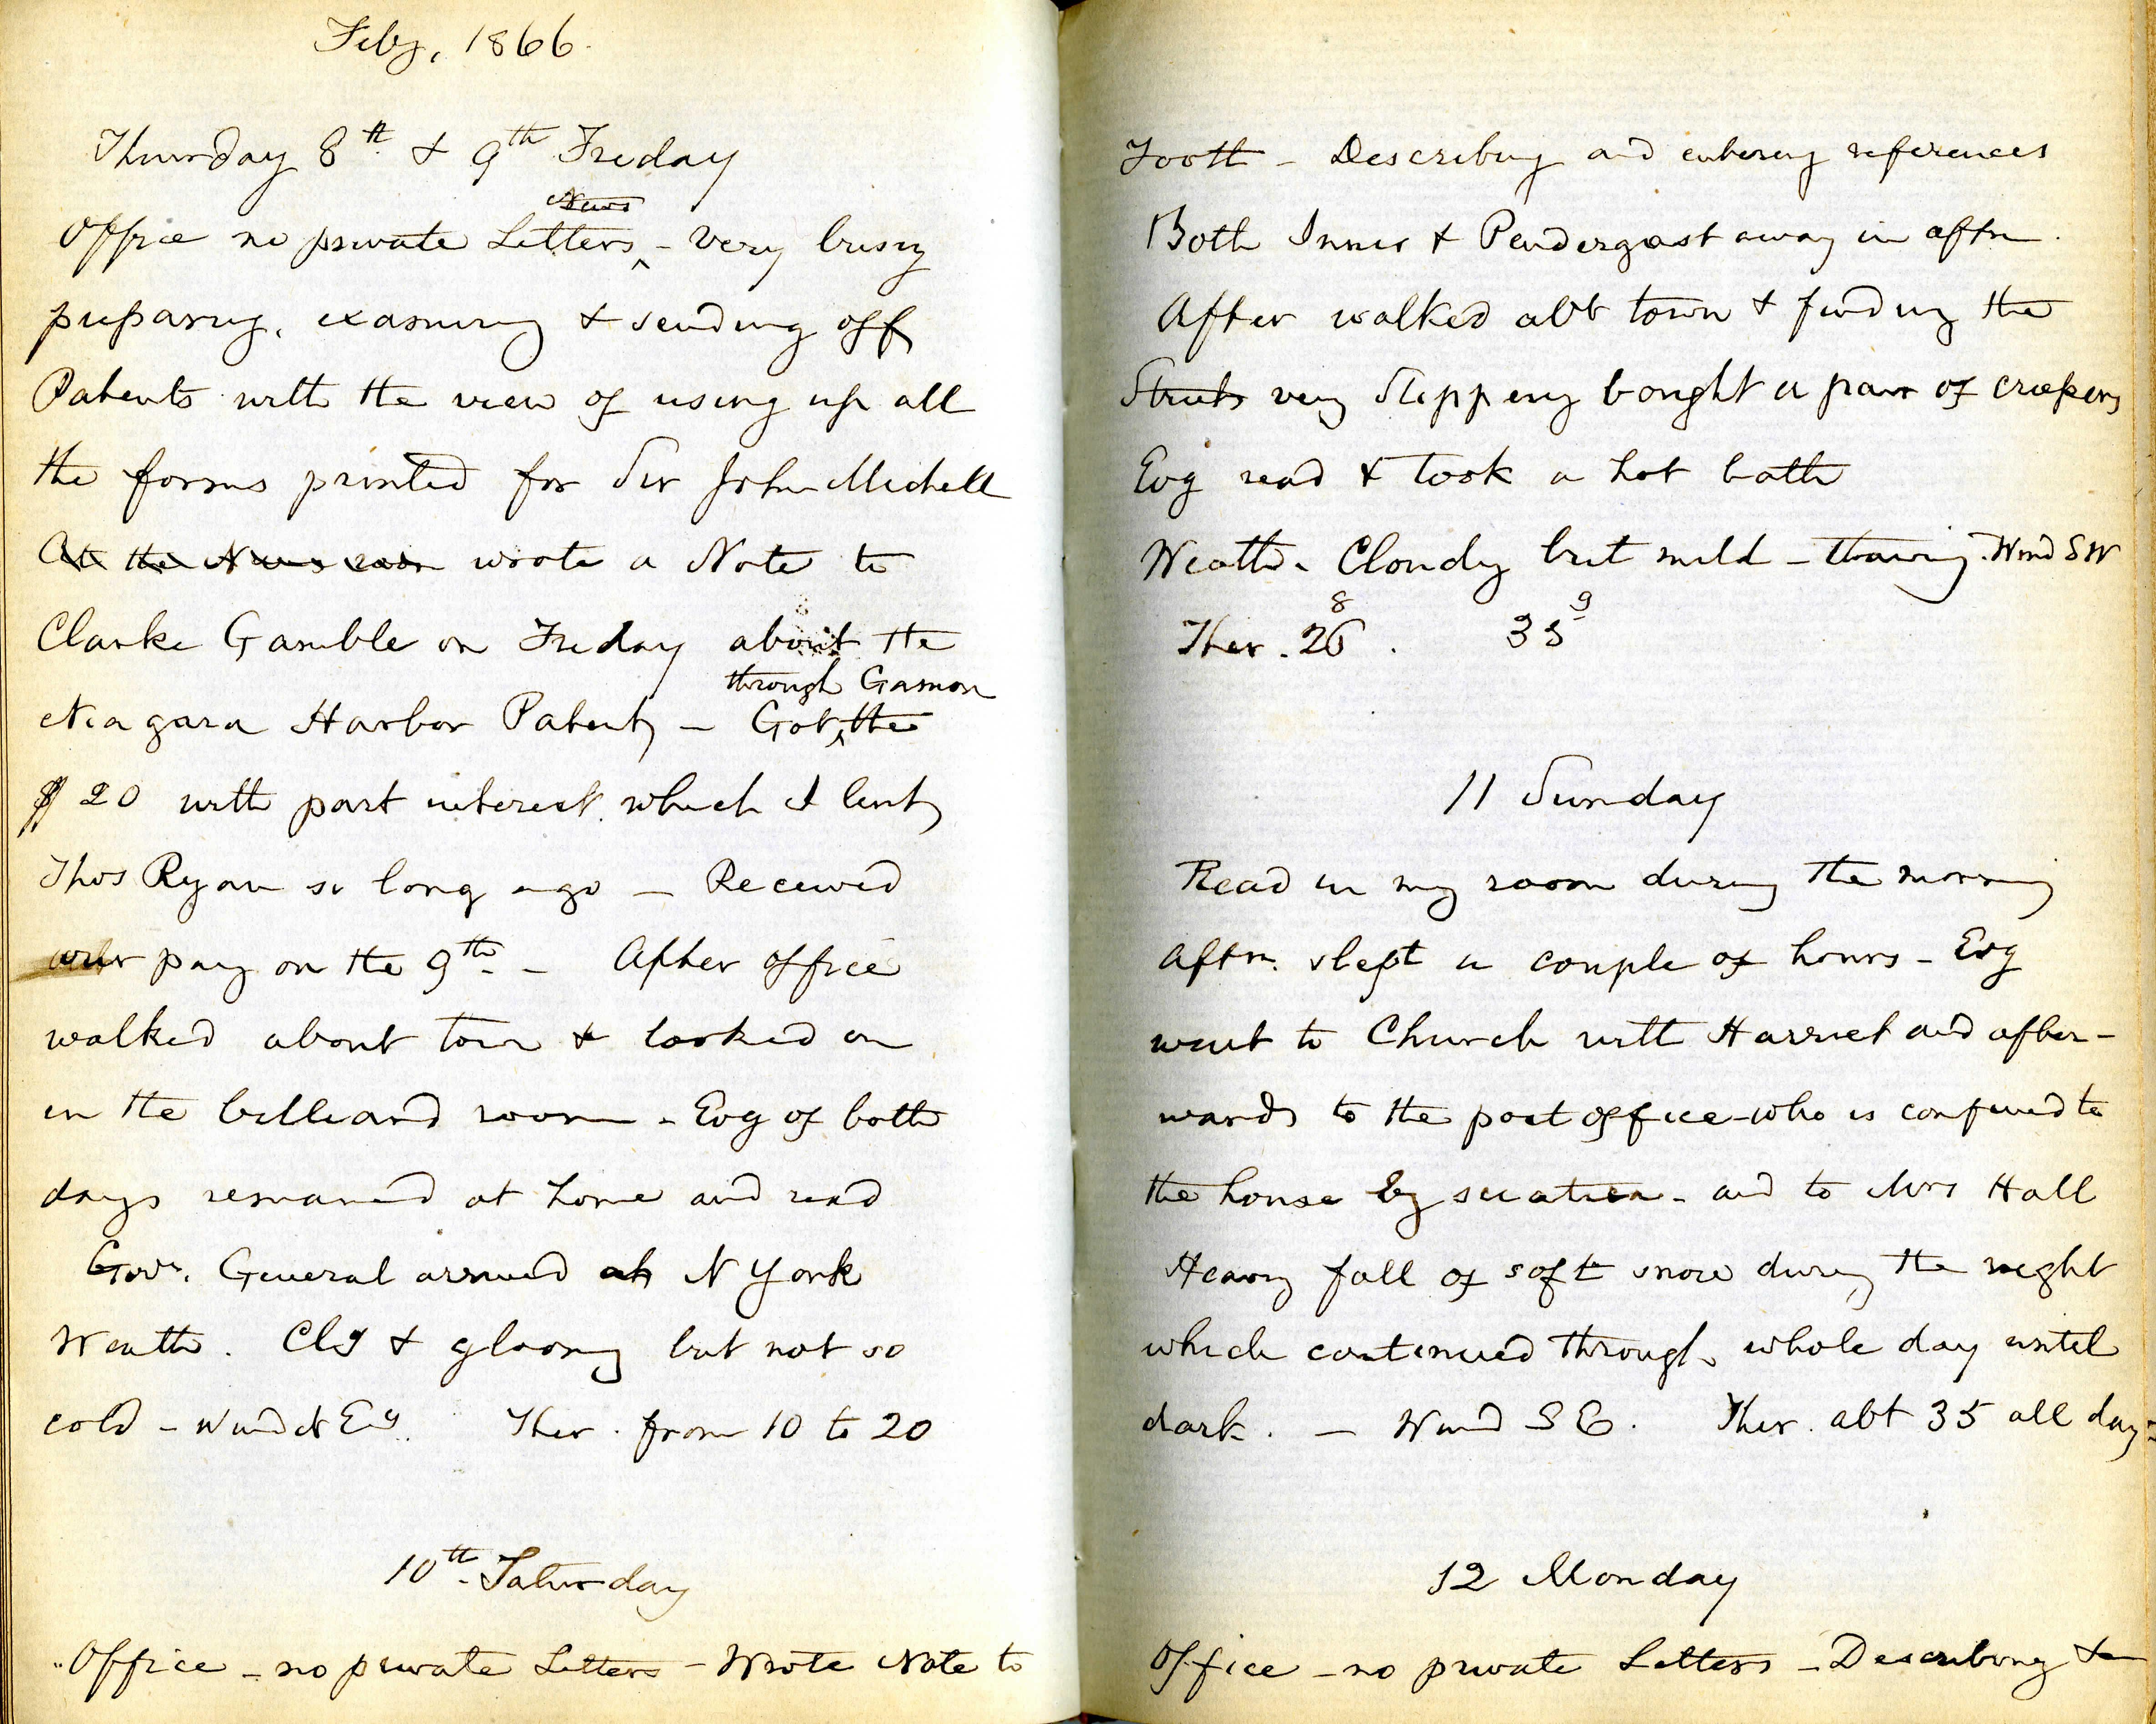 Feby, 1866.
Thursday 8th & 9th Friday
News
Office no private Letters, - Very busy
preparing, examining & sending off
Patents with the view of using up all
the forms printed for Sir John Michell
At the News room wrote a Note to
Clarke Gamble on Friday about the
through Gamon
Niagara Harbor Patent, - Got the
$20 with part interest which I lent,
Thos Ryan so long ago - Received
our pay on the 9th - After office
walked about town & looked on
in the billiard room - Evg of both
days remained at home and read
Govr. General arrived at N York
Weathr. Cly & gloomy but not so
cold - Wind N Ey. Ther. from 10 to 20
10th Saturday
Office - no private Letters - Wrote Note to
Tooth - Describing and entering references
Both Innes & Pendergast away in aftn.
After walked abt town & finding the
Streets very Slippery bought a pair of creepers
Evg read & took a hot bath
Weathr. Cloudy but mild - thawing. Wind SW
8 9
Ther. 26. 35
11 Sunday
Read in my room during the morning
Aftn. slept a couple of hours - Evg
went to Church with Harriet and after-
wards to the post office - who is confined to
the house by sciatica - and to Mrs Hall
Heavy fall of soft snow during the night
which continued through whole day until
dark. - Wind S E. Ther. abt 35 all day
12 Monday
Office - no private Letters - Describing &